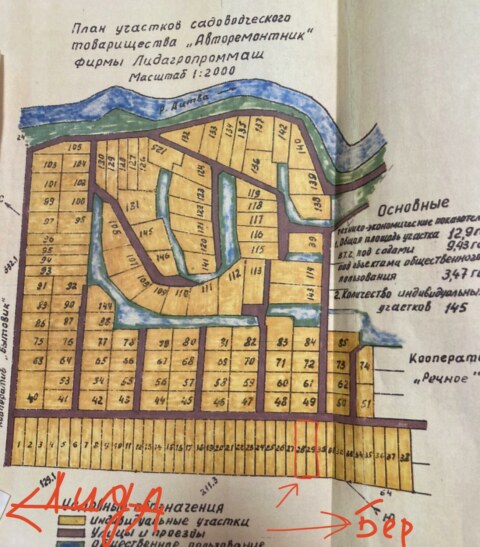 План участков садоводческого
товарищества „Авторемонтник"
фирмы Лидагропроммаш
Масштаб 1:2000
р. Дитва
105
103 104
101 102
99 100
97 98
96
95
94
93
91 92
89 90
87 88
132 133 134 135 137 142 140
136
139
138
130 129 128 127 126
125
124
123
122
121
120
141
131
145
146
108
107
109
110
111
112
113
119
118
117
116
115
114
143
144
Основные
технико-экономические показатели
1. Общая площадь участка 12,9 г
в т.ч. под садами 9,43 га
под объектами общественного
пользования 3,47 га
2. Количество индивидуальных
участков 145
75 76 77 78 79 80 81 82 83 84 85
63 64 65 66 67 68 69 70 71 72 73 74
53 54 55 56 57 58 59 60 61 62
40 41 42 43 44 45 46 47 48 49 50 51
Кооператив „Бытовик"
Кооперат
„Речное"
1 2 3 4 5 6 7 8 9 10 11 12 13 14 15 16 17 18 19 20 21 22 23 24 25 26 27 28 29 30 31 32 33 34 35 36 37 38
129.1
211.8
64
Ю
Лида
Бер
Условные обозначения
индивидуальные участки
Улицы и проезды
общественное пользование